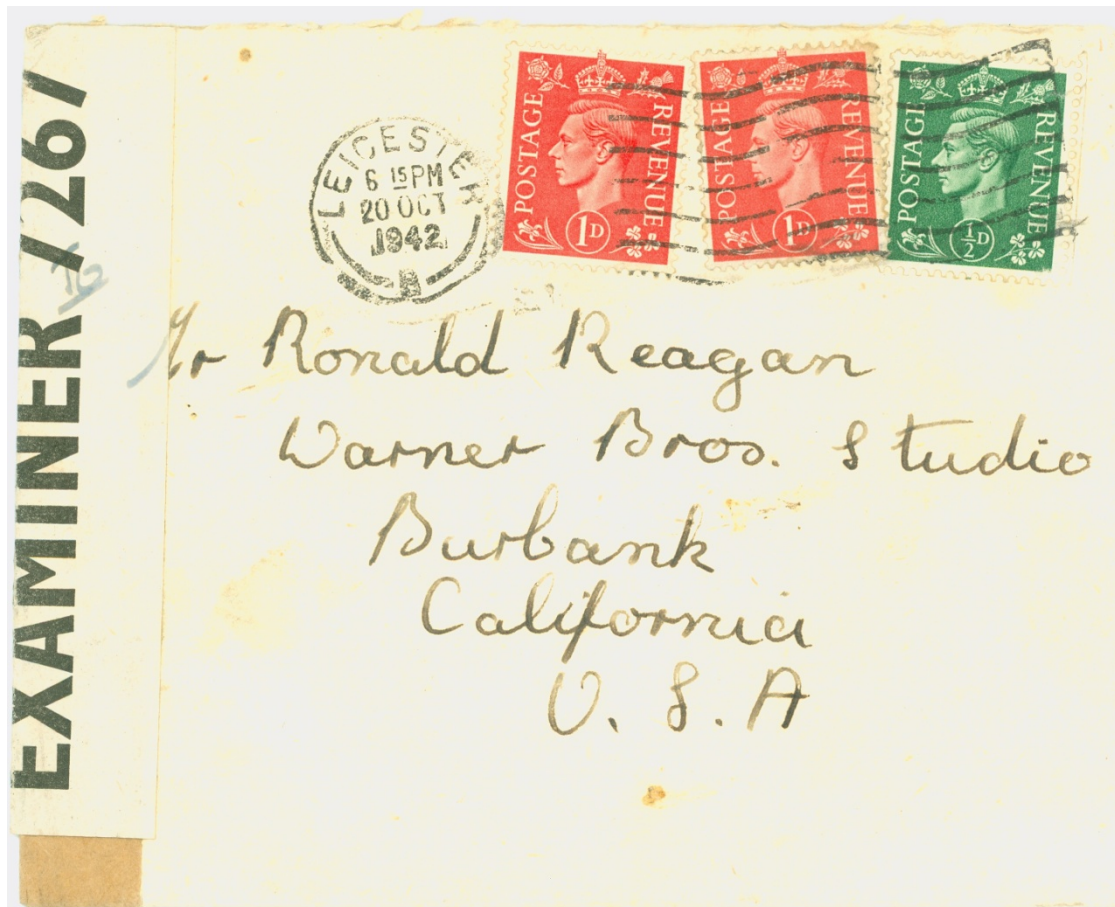 EXAMINER 7267
LEICESTER
6 15 PM
20 OCT
1942
B
POSTAGE REVENUE
1D
POSTAGE REVENUE
1D
POSTAGE REVENUE
½D
Mr Ronald Reagan
Warner Bros. Studio
Burbank
California
U. S. A